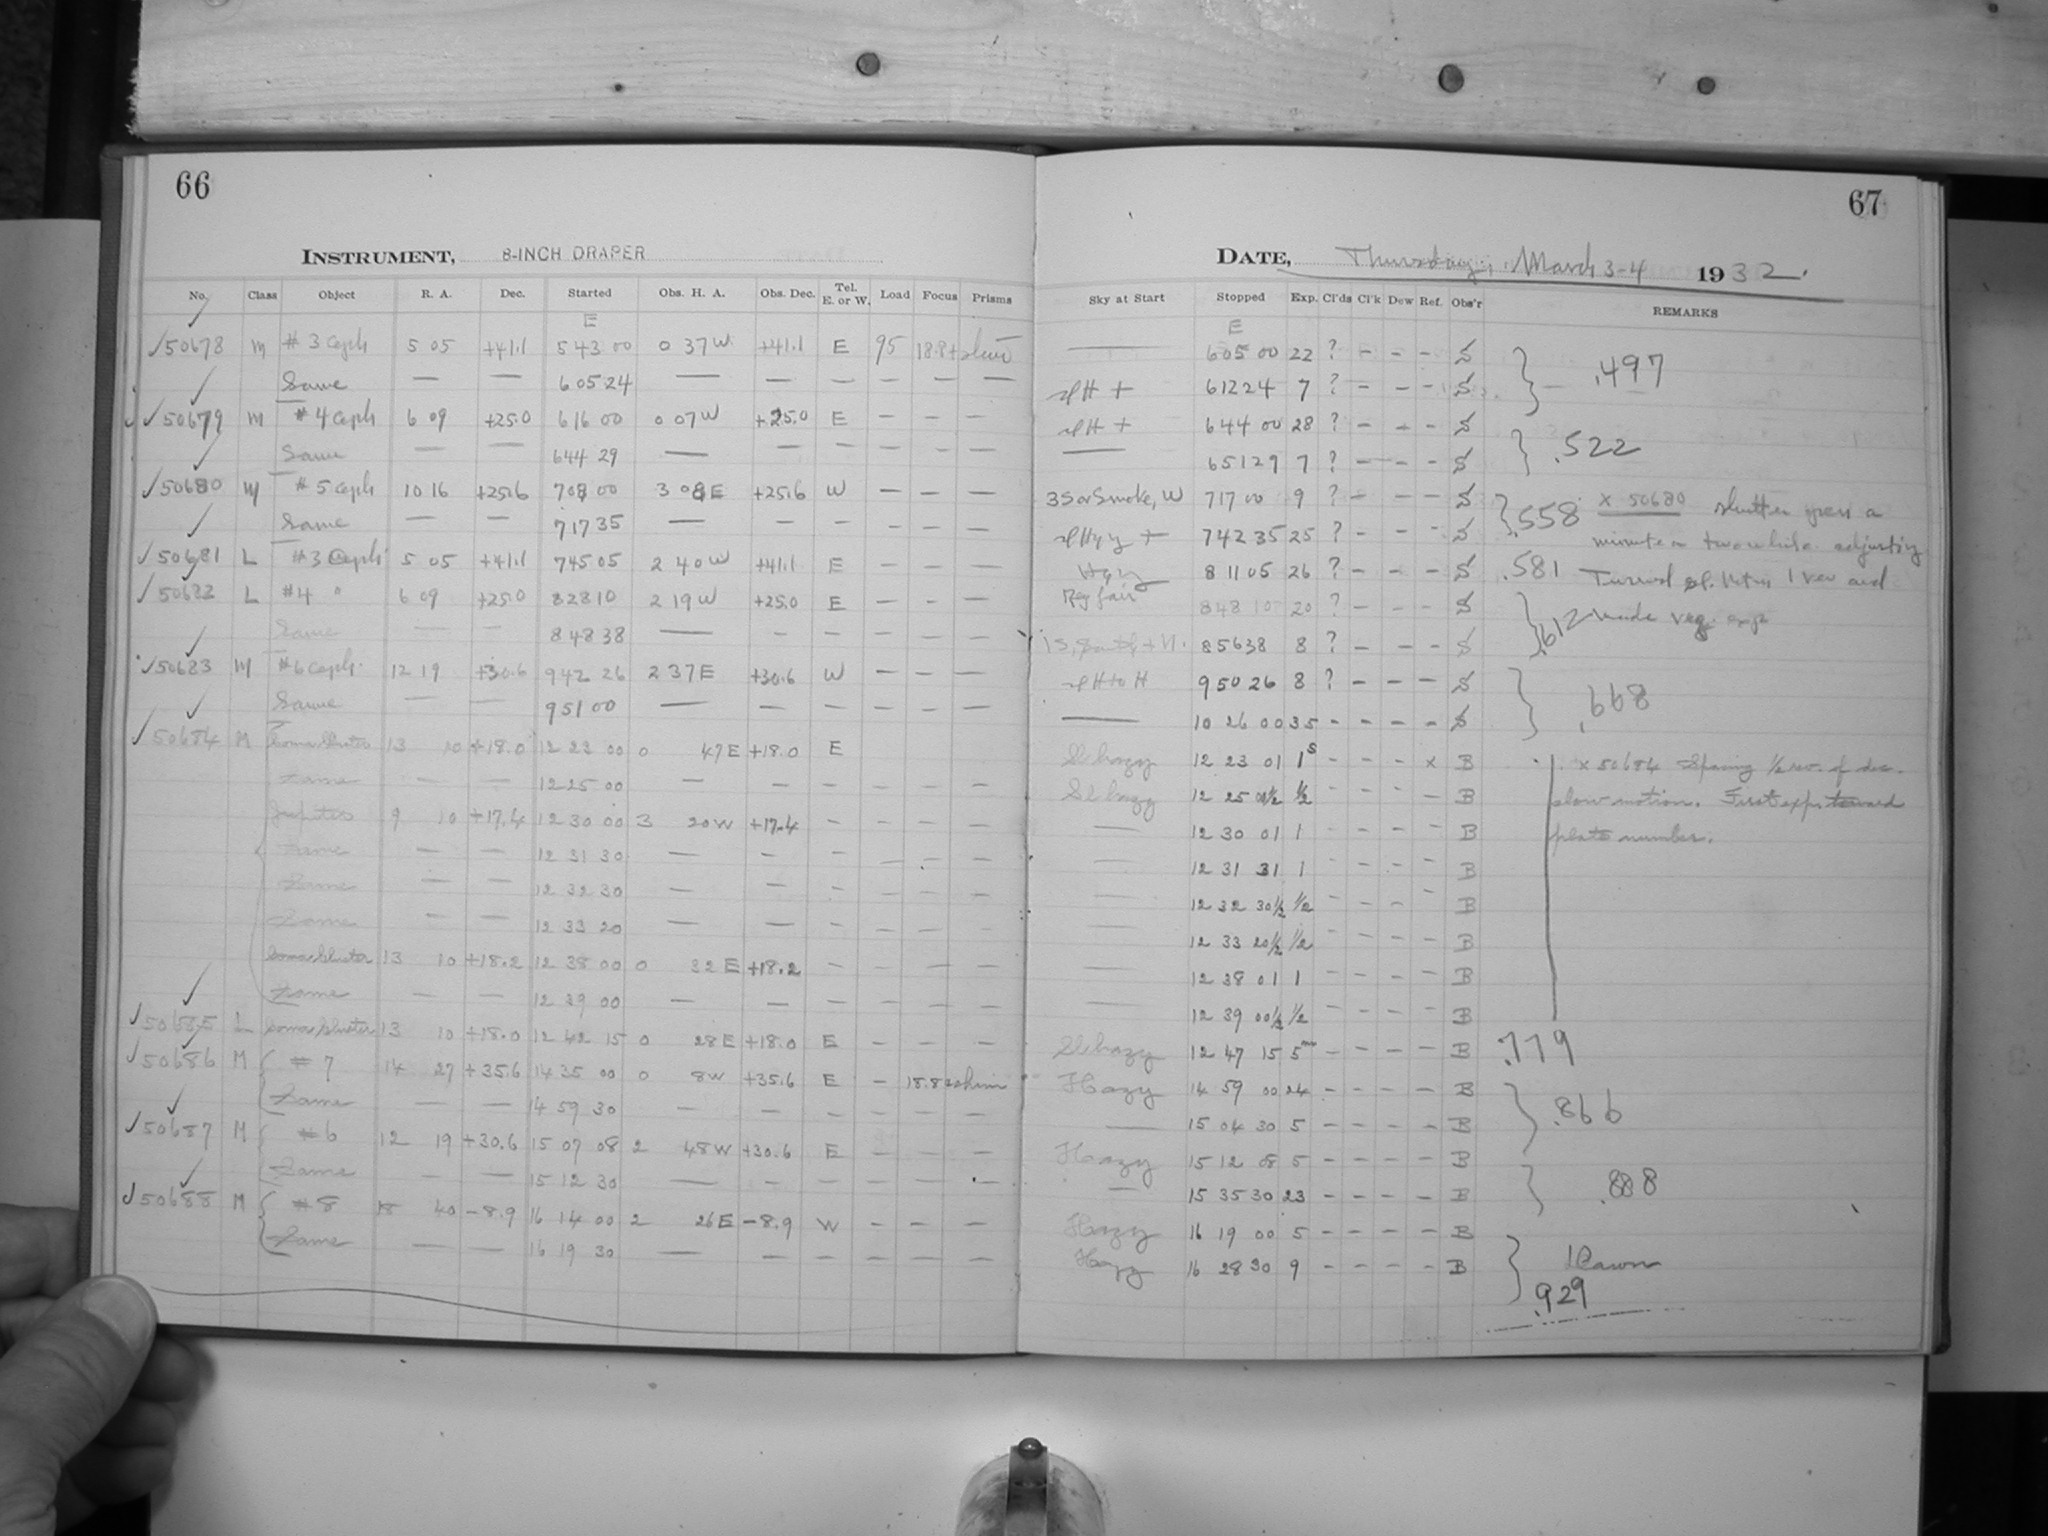 66
INSTRUMENT, 8-INCH DRAPER
No. Class Object R. A. Dec. Started Obs. H. A. Obs. Dec. Tel. E. or W. Load Focus Prisms
E
50678 M #3 Ceph 5 05 +41.1 5 43 00 0 37 W +41.1 E 95
Same — — 6 05 24 — — — — — —
50679 M #4 Ceph 6 09 +25.0 6 16 00 0 07 W +25.0 E — — —
Same — — 6 44 29 — — — — — —
50680 M #5 Ceph 10 16 +25.6 7 08 00 3 08 E +25.6 W — — —
Same — — 7 17 35 — — — — — —
50681 L #3 Ceph 5 05 +41.1 7 45 05 2 40 W +41.1 E — — —
50682 L #4 " 6 09 +25.0 8 28 10 2 19 W +25.0 E — — —
Same — — 8 48 38 — — — — — —
50683 M #6 Ceph. 12 19 +30.6 9 42 26 2 37 E +30.6 W — — —
Same — — 9 51 00 — — — — — —
50684 M Coma Cluster 13 10 +18.0 12 23 00 0 47 E +18.0 E
Same — — 12 25 00 — — — — — —
Jupiter 9 10 +17.4 12 30 00 3 20 W +17.4 — — — —
Same — — 12 31 30 — — — — — —
Same — — 12 32 30 — — — — — —
Same — — 12 33 20 — — — — — —
Coma Cluster 13 10 +18.2 12 38 00 0 32 E +18.2 — — — —
Same — — 12 39 00 — — — — — —
50685 L Coma Cluster 13 10 +18.0 12 42 15 0 28 E +18.0 E — — —
50686 M #7 14 27 +35.6 14 35 00 0 8 W +35.6 E —
Same — — 14 59 30 — — — — — —
50687 M #6 12 19 +30.6 15 07 08 2 48 W +30.6 E — — —
Same — — 15 12 30 — — — — — —
50688 M #8 18 40 -8.9 16 14 00 2 26 E -8.9 W — — —
Same — — 16 19 30 — — — — — —
67
DATE, Thursday, March 3-4 1932.
Sky at Start Stopped Exp. Cl'ds Cl'k Dew Ref. Obs'r REMARKS
E
— 6 05 00 22 ? — — — S .497
6 12 24 7 ? — — — S
6 44 00 28 ? — — — S .522
— 6 51 29 7 ? — — — S
3S or Smoke, W 7 17 00 9 ? — — — S .558 x 50680 shutter open a
7 42 35 25 ? — — — S minute or two while adjusting
Hazy 8 11 05 26 ? — — — S .581 Turned 1 rev and
fair 8 48 10 20 ? — — — S .612 made reg. exp
8 56 38 8 ? — — — S
9 50 26 8 ? — — — S .668
— 10 26 00 35 — — — — S
Sl hazy 12 23 01 1s — — — x B x 50684 Spacing 1/2 rev. of dec.
Sl hazy 12 25 00 1/2 1/2 — — — — B slow motion. First exp. toward
— 12 30 01 1 — — — — B plate number.
— 12 31 31 1 — — — — B
— 12 32 30 1/2 1/2 — — — — B
— 12 33 20 1/2 1/2 — — — — B
— 12 38 01 1 — — — — B
— 12 39 00 1/2 1/2 — — — — B
Sl hazy 12 47 15 5m — — — — B .779
Hazy 14 59 00 24 — — — — B .866
— 15 04 30 5 — — — — B
Hazy 15 12 08 5 — — — — B .888
— 15 35 30 23 — — — — B
Hazy 16 19 00 5 — — — — B
Hazy 16 28 30 9 — — — — B Dawn
.929